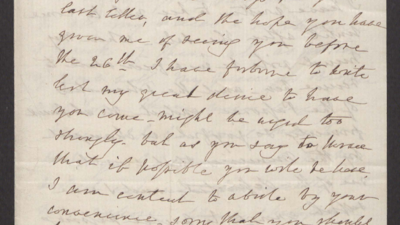 last letter, and the hope you have
given me of seeing you before
the 26th I have forborne to write
lest my great desire to have
you come - might be urged too
strongly. but as you say to
that if possible you will be here.
I am content to abide by your
convenience, that you should